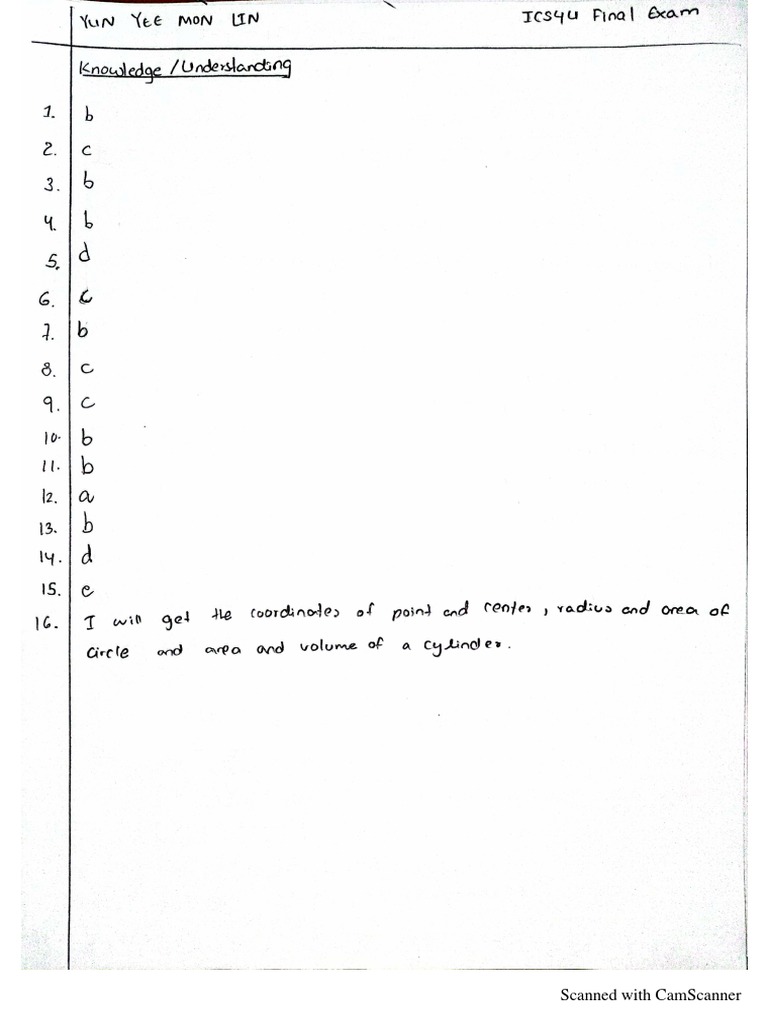 YUN YEE MON LIN ICS4U Final Exam
Knowledge / Understanding
1. b
2. c
3. b
4. b
5. d
6. c
7. b
8. c
9. c
10. b
11. b
12. a
13. b
14. d
15. e
16. I will get the coordinates of point and center, radius and area of
circle and area and volume of a cylinder.
Scanned with CamScanner